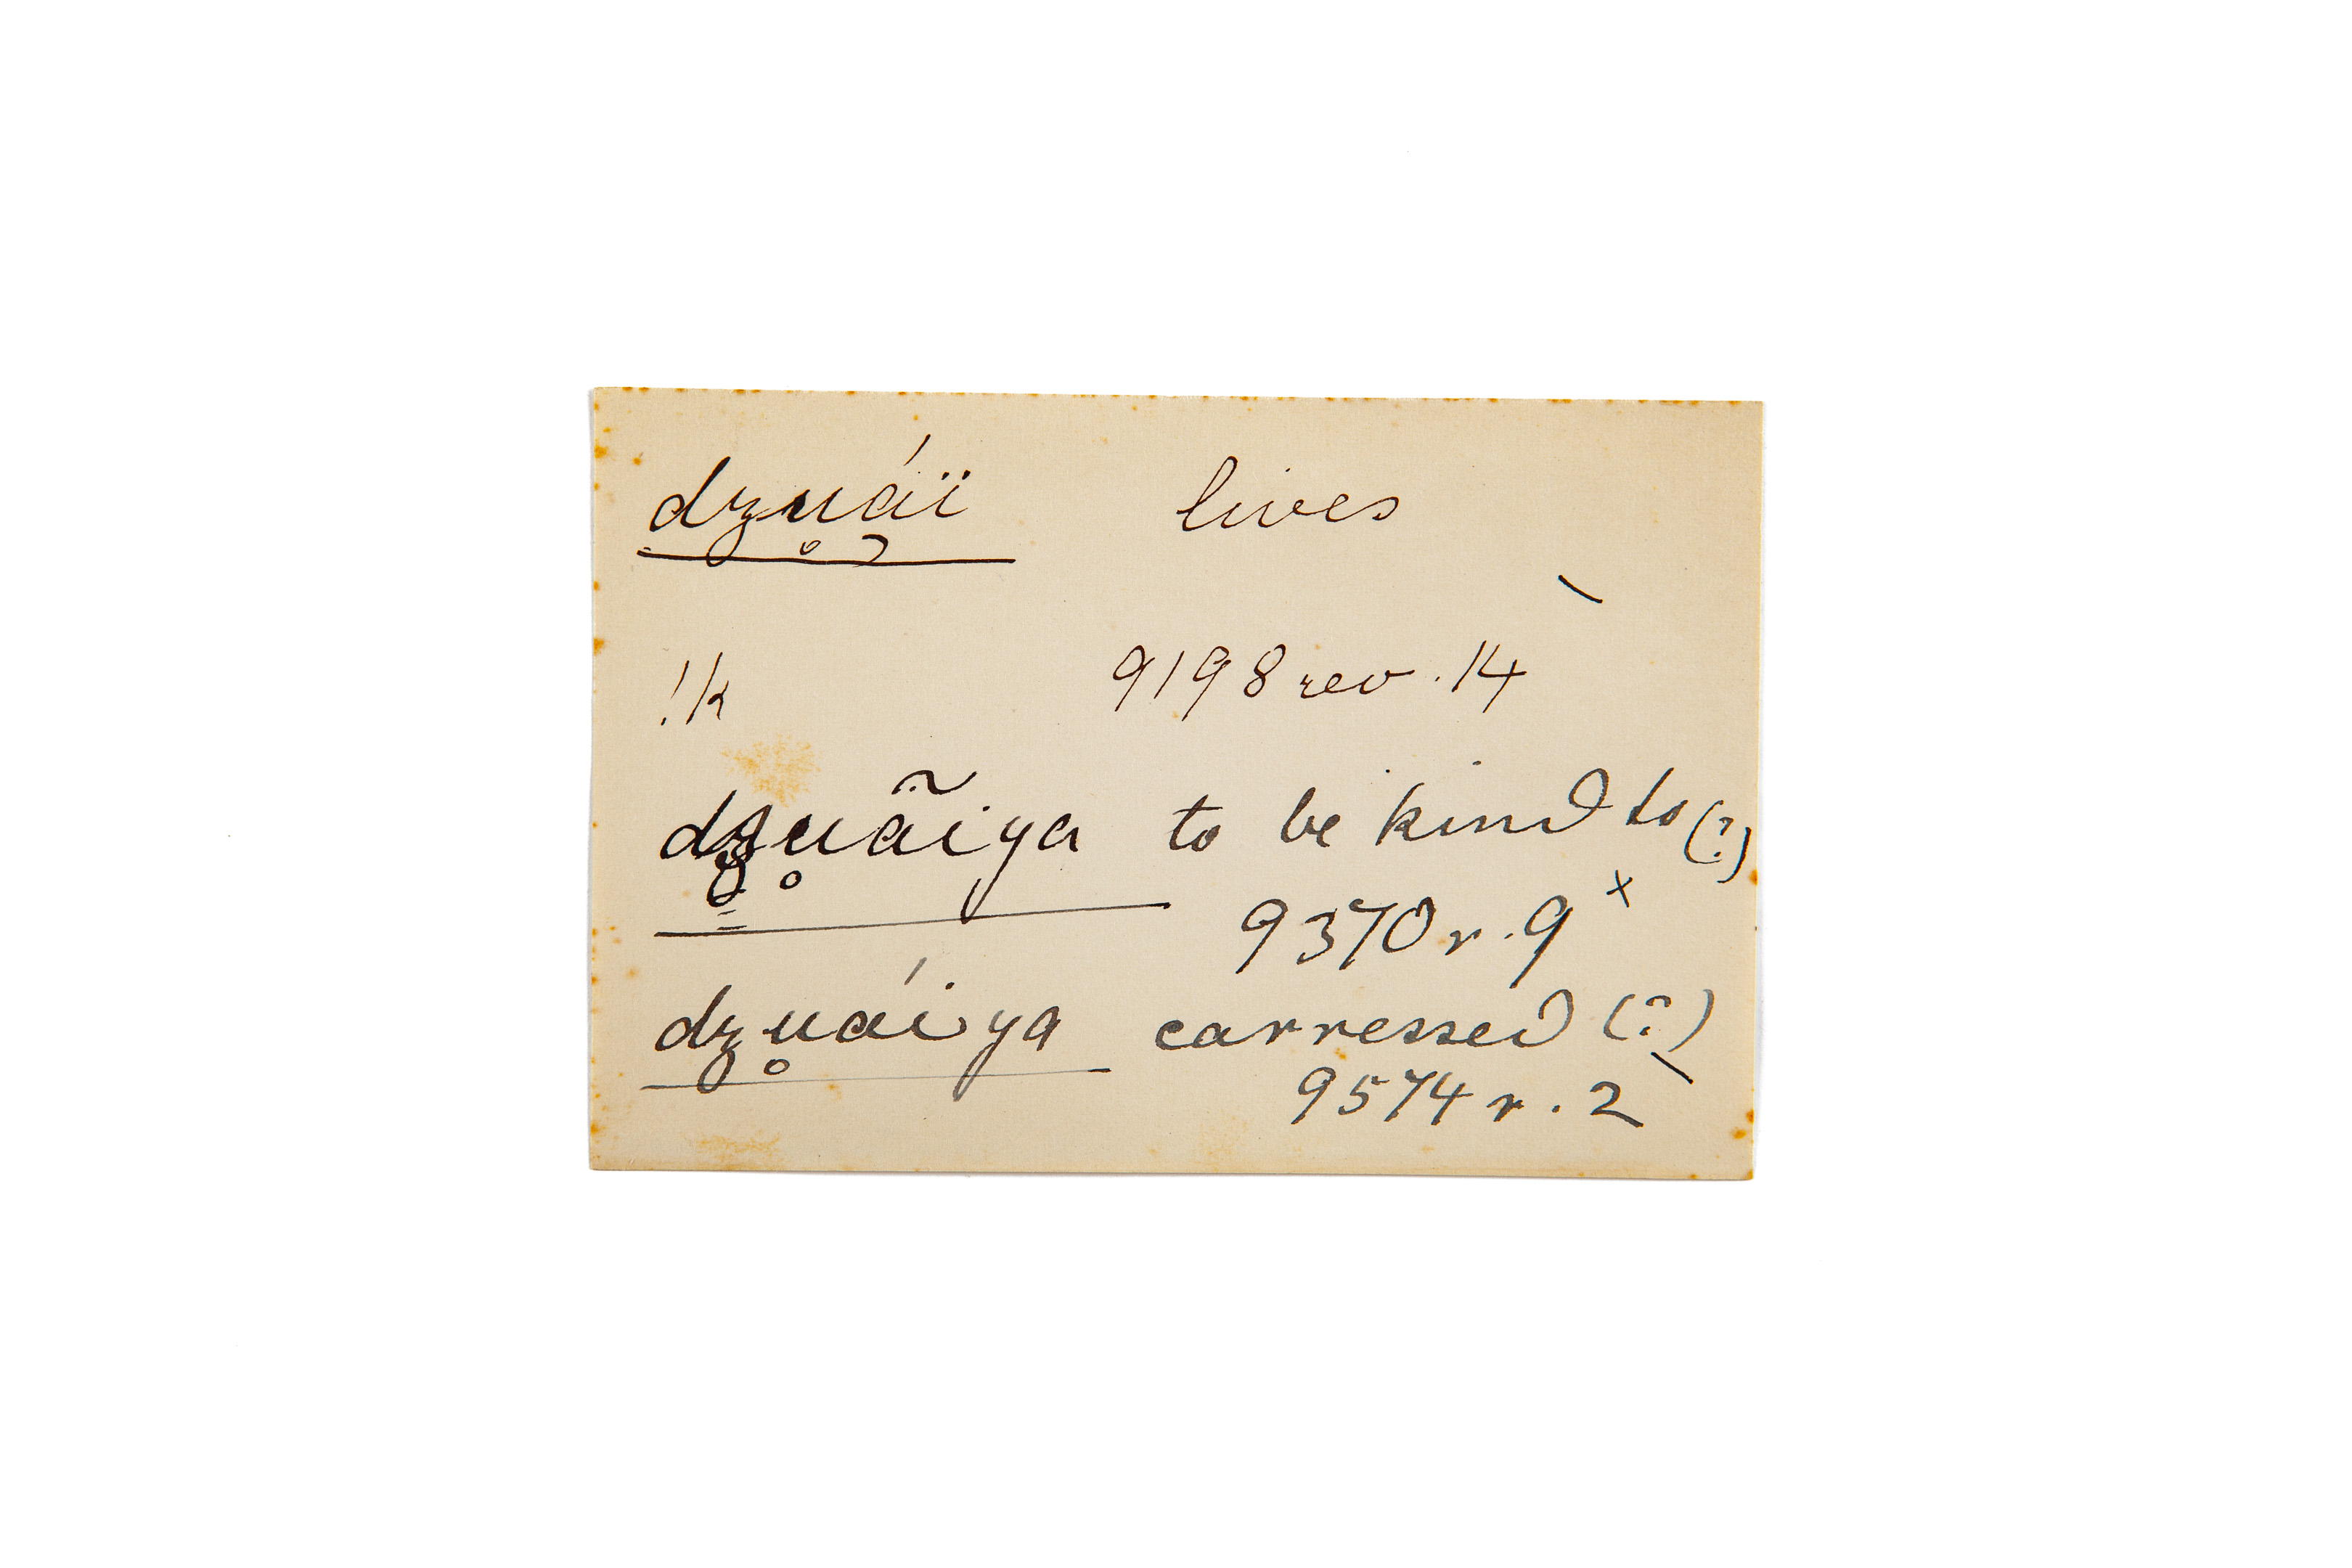 dzu̥á̢ï lives
!k 9198 rev. 14
dzu̥ãiya to be kind to (?)
9370 r. 9 ×
dzu̥áiya carressed (?)
9574 r. 2